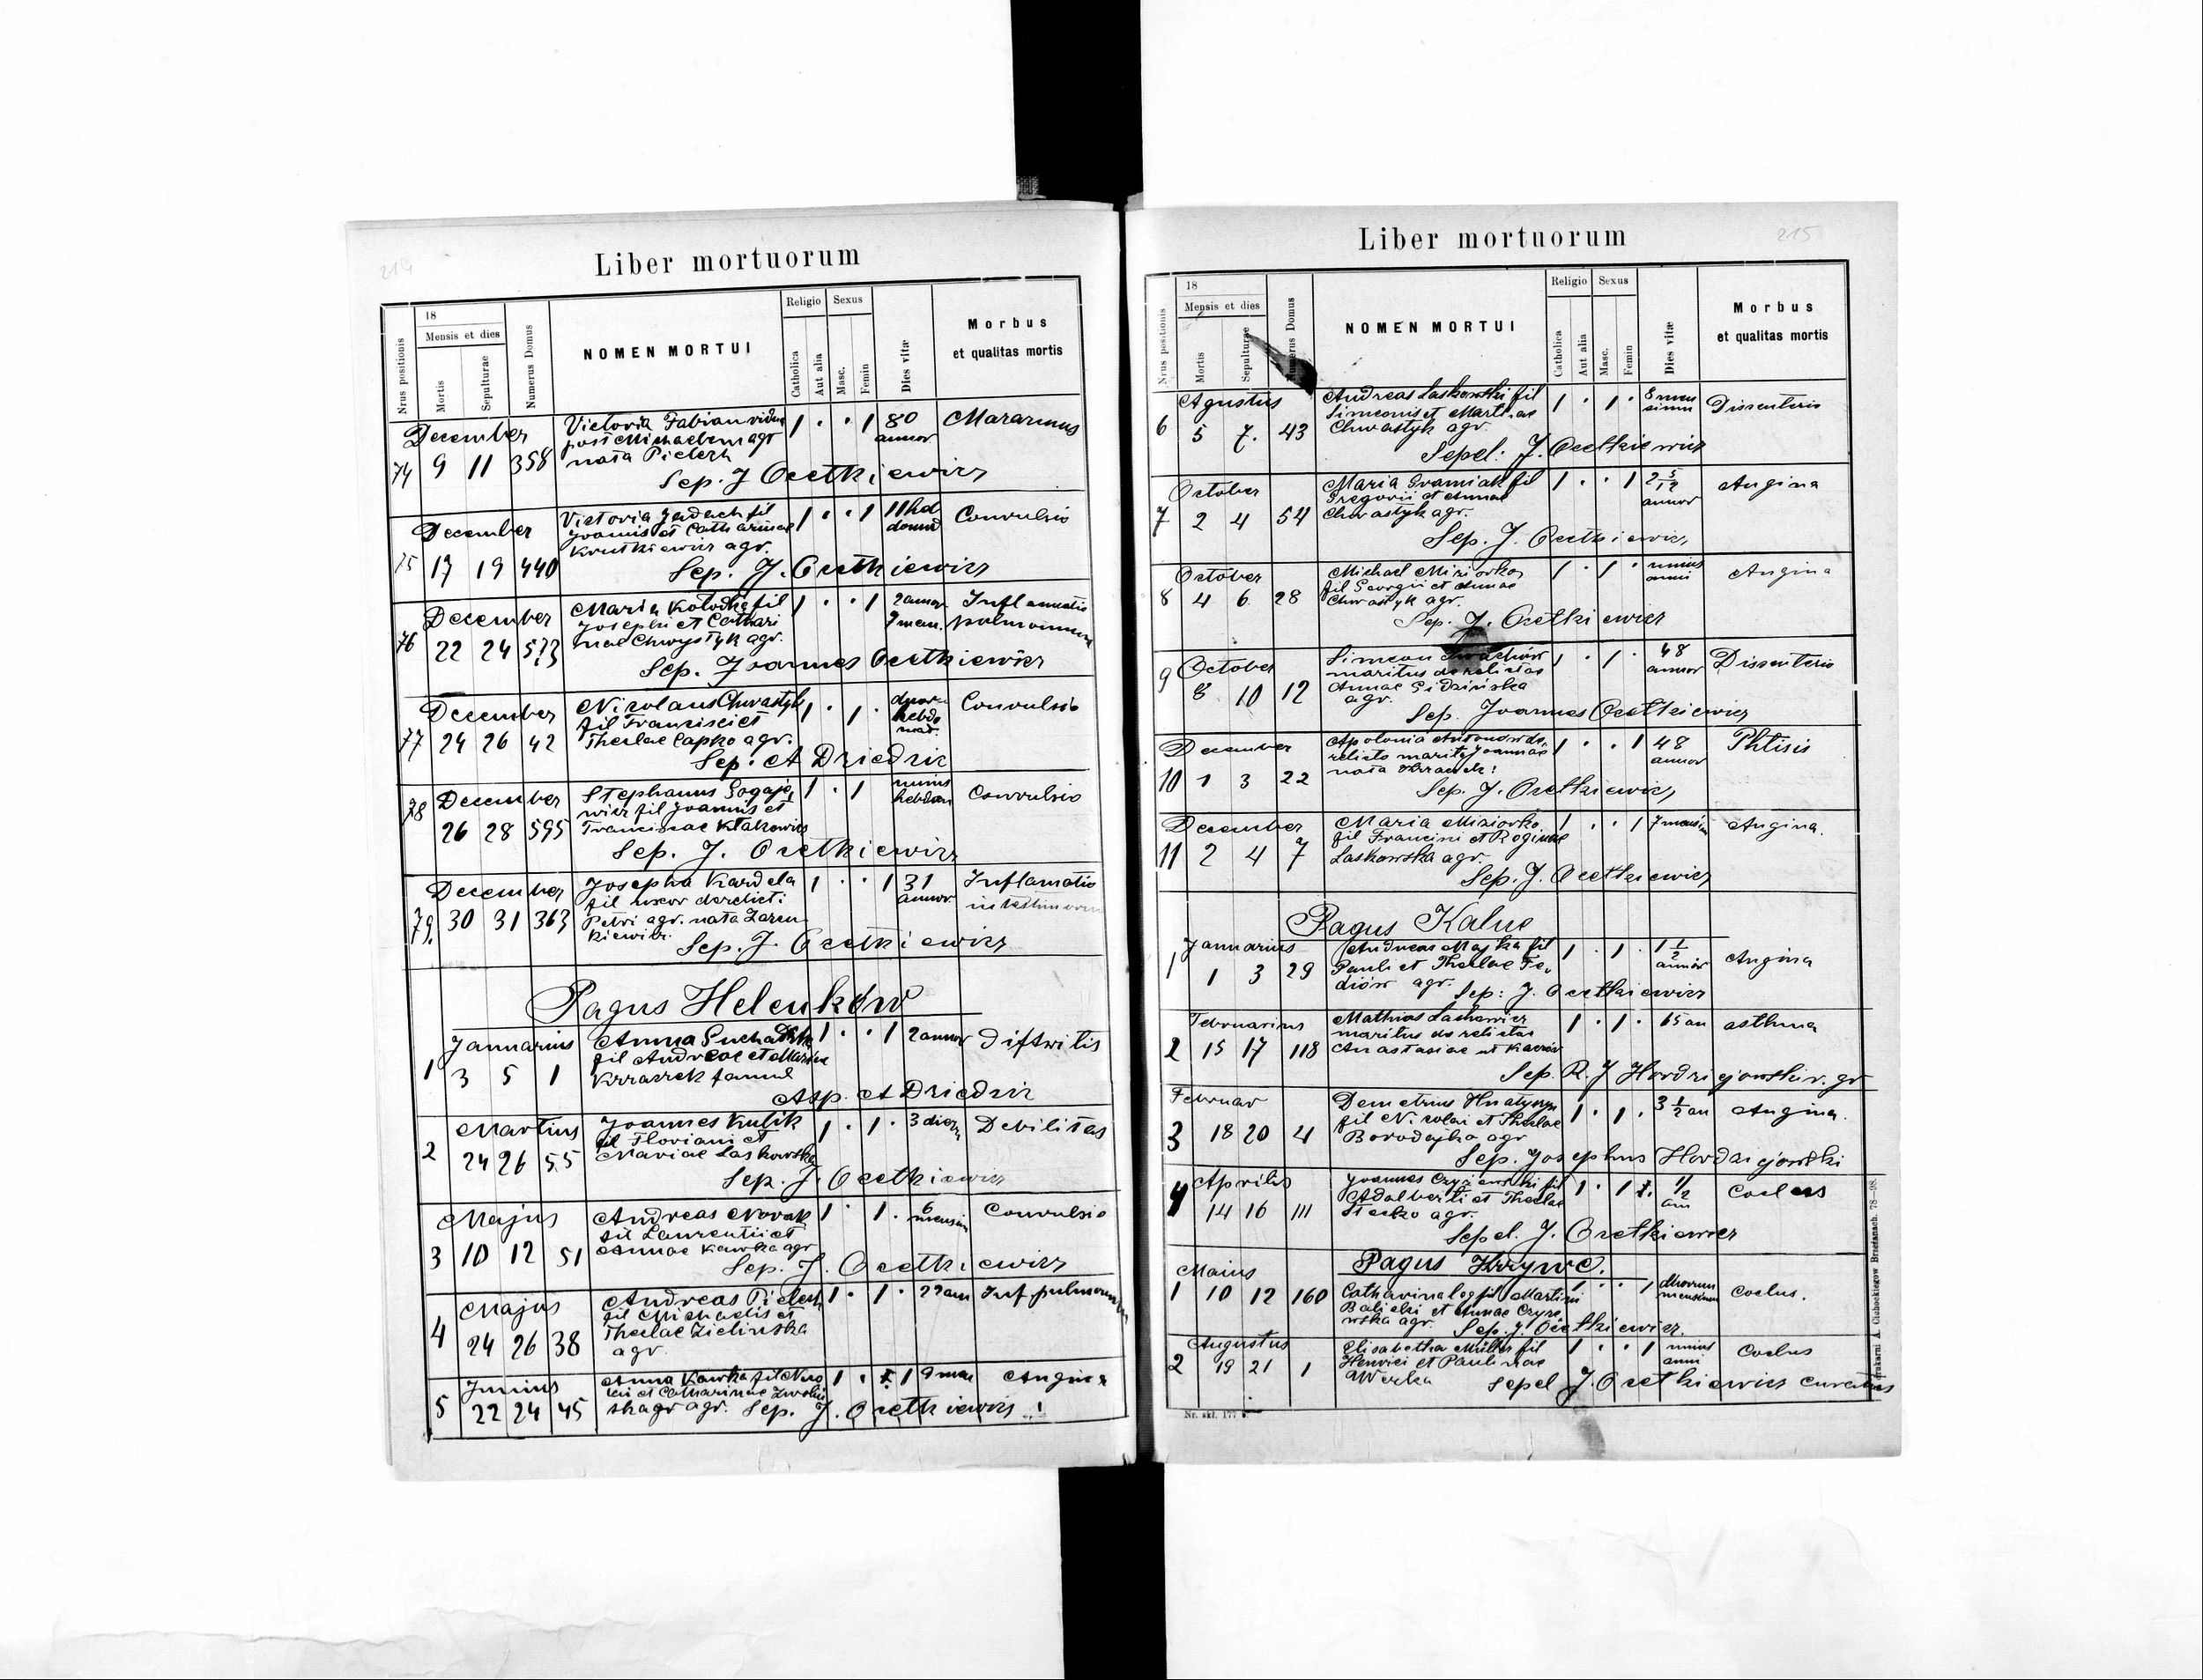 214
Liber mortuorum
Nrus positionis
18
Mensis et dies
Mortis
Sepulturae
Numerus Domus
NOMEN MORTUI
Religio
Catholica
Aut alia
Sexus
Masc.
Femin
Dies vitæ
Morbus
et qualitas mortis
December
Victoria Fabian vidua
post Michaelem agr
nata Pielech
74 9 11 358 1 . . 1 80 annor
Sep. J Ocetkiewicz
December
Victoria fil
Joannis et Catharinae
agr.
75 17 19 440 1 . . 1 11 hd domad Convulsio
Sep. J. Ocetkiewicz
December
Maria fil
Josephi et Cathari
nae Chwystyk agr.
76 22 24 573 1 . . 1 2 annor 7 men. Inflamatio pulmonum
Sep. Joannes Ocetkiewicz
December
Nicolaus Chwastyk
fil Francisci et
Theclae Capko agr.
77 24 26 42 1 . 1 . Convulsio
Sep. A Dziedzic
December
Stephanus
wicz fil Joannis et
Franciscae
78 26 28 595 1 . 1 unius hebdom Convulsio
Sep. J. Ocetkiewicz
December
Josepha Kardela
fil uxor derelicti
Petri agr. nata Zaren
kiewicz.
79. 30 31 363 1 . . 1 31 annor Inflamatio intestinorum
Sep. J. Ocetkiewicz
Pagus Helenków
Januarius
Anna
fil Andreae et Mariae
famul
1 3 5 1 1 . . 1 2 annor Diftritis
A Dziedzic
Martius
Joannes Kulik
fil Floriani et
Mariae Laskowska
2 24 26 55 1 . 1 . 3 dier Debilitas
Sep. J. Ocetkiewicz
Majus
Andreas Novak
fil Laurentii et
Annae Kawka agr
3 10 12 51 1 . 1 . 6 mensium Convulsio
Sep. J. Ocetkiewicz
Majus
Andreas Pielech
fil Michaelis et
Theclae Zielinska
agr.
4 24 26 38 1 . 1 . 29 ann Inf. pulmonum
Junius
Anna Kawka fil
et Catharinae
agr. Sep. J. Ocetkiewicz
5 22 24 45 1 . 1 9 men Angina
215
Liber mortuorum
Nrus positionis
18
Mensis et dies
Mortis
Sepulturae
Numerus Domus
NOMEN MORTUI
Religio
Catholica
Aut alia
Sexus
Masc.
Femin
Dies vitæ
Morbus
et qualitas mortis
Agustus
Andreas Laskowski fil
Simeonis et Marthae
Chwastyk agr.
6 5 7. 43 1 . 1 . 8 men sium Dissenteria
Sepel: J. Ocetkiewicz
October
Maria fil
Gregorii et Annae
Chwastyk agr.
7 2 4 54 1 . . 1 2 5/12 annor Angina
Sep. J. Ocetkiewicz
October
Michael Miziorko
fil Georgii et Annae
Chwastyk agr.
8 4 6 28 1 . 1 . unius anni Angina
Sep. J. Ocetkiewicz
October
Simeon
maritus derelictae
Annae
agr.
9 8 10 12 1 . 1 . 48 annor Dissenteria
Sep. Joannes Ocetkiewicz
December
Apolonia
relicta
nata
10 1 3 22 1 . . 1 48 annor Phtisis
Sep. J. Ocetkiewicz
December
Maria Miziorko
fil Francisci et Reginae
Laskowska agr.
11 2 4 7 1 . . 1 7 mensium Angina.
Sep. J. Ocetkiewicz
Pagus Kalne
Januarius
Andreas Majka fil
Pauli et Theclae Fe
diów agr.
1 1 3 29 1 . 1 . 1 1/2 annor Angina
Sep: J. Ocetkiewicz
Februarius
Mathias Laskowicz
maritus derelictae
Anastasiae
2 15 17 118 1 . 1 . 65 an asthma
Sep. R. J
Februar
Demetrius Hnatyszyn
fil Nicolai et Theclae
Borodajko agr
3 18 20 4 1 . 1 . 3 1/2 an Angina.
Sep. Josephus
Aprilis
Joannes fil
Adalberti et Theclae
Stecko agr.
4 14 16 111 1 . 1 1/2 an
Sepel. J. Ocetkiewicz
Pagus Krzywe.
Maius
Catharina fil Martini
Balicki et Annae
agr.
1 10 12 160 1 . . 1 duorum mensium
Sep. J. Ocetkiewicz.
Augustus
Elisabetha Müller fil
Henrici et Paulinae
2 19 21 1 1 . . 1 unius anni
Sepel J. Ocetkiewicz curatus